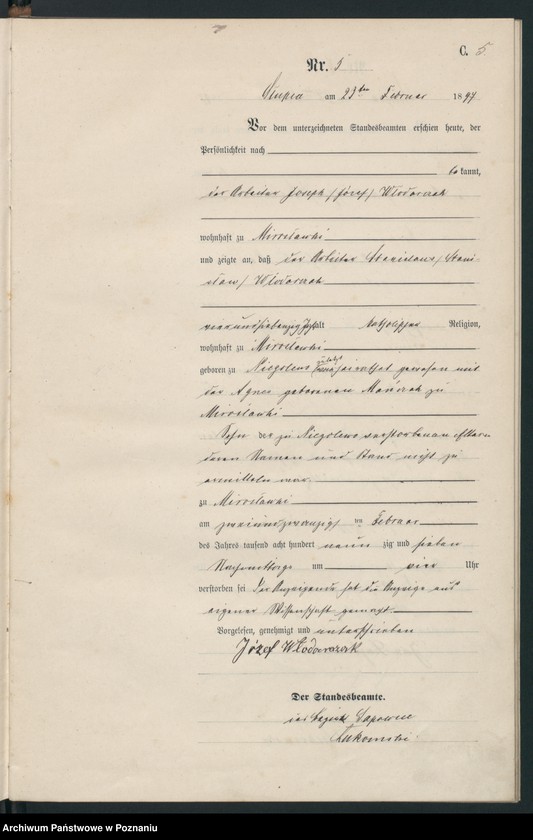 C. 5.
Nr. 5
Slupia am 23ten Februar 1897
Vor dem unterzeichneten Standesbeamten erschien heute, der
Persönlichkeit nach
bekannt,
der Arbeiter Joseph /Józef/ Wlodarczak
wohnhaft zu Miroslawki
und zeigte an, daß der Arbeiter Stanislaus /Stani-
slaw/ Wlodarczak
vierundsiebenzig Jahr alt katholischer Religion,
wohnhaft zu Miroslawki
geboren zu Niegolewo zuletzt verheirathet gewesen mit
der Agnes geborenen zu
Miroslawki
Sohn der zu Niegolewo verstorbenen Eltern
deren Namen und Stand nicht zu
ermitteln war
zu Miroslawki
am zweiundzwanzigsten Februar
des Jahres tausend acht hundert neunzig und sieben
Nachmittags um vier Uhr
verstorben sei Der Anzeigende hat die Anzeige aus
eigener Wissenschaft gemacht
Vorgelesen, genehmigt und unterschrieben
Józef Włodarczak
Der Standesbeamte.
Lukomski